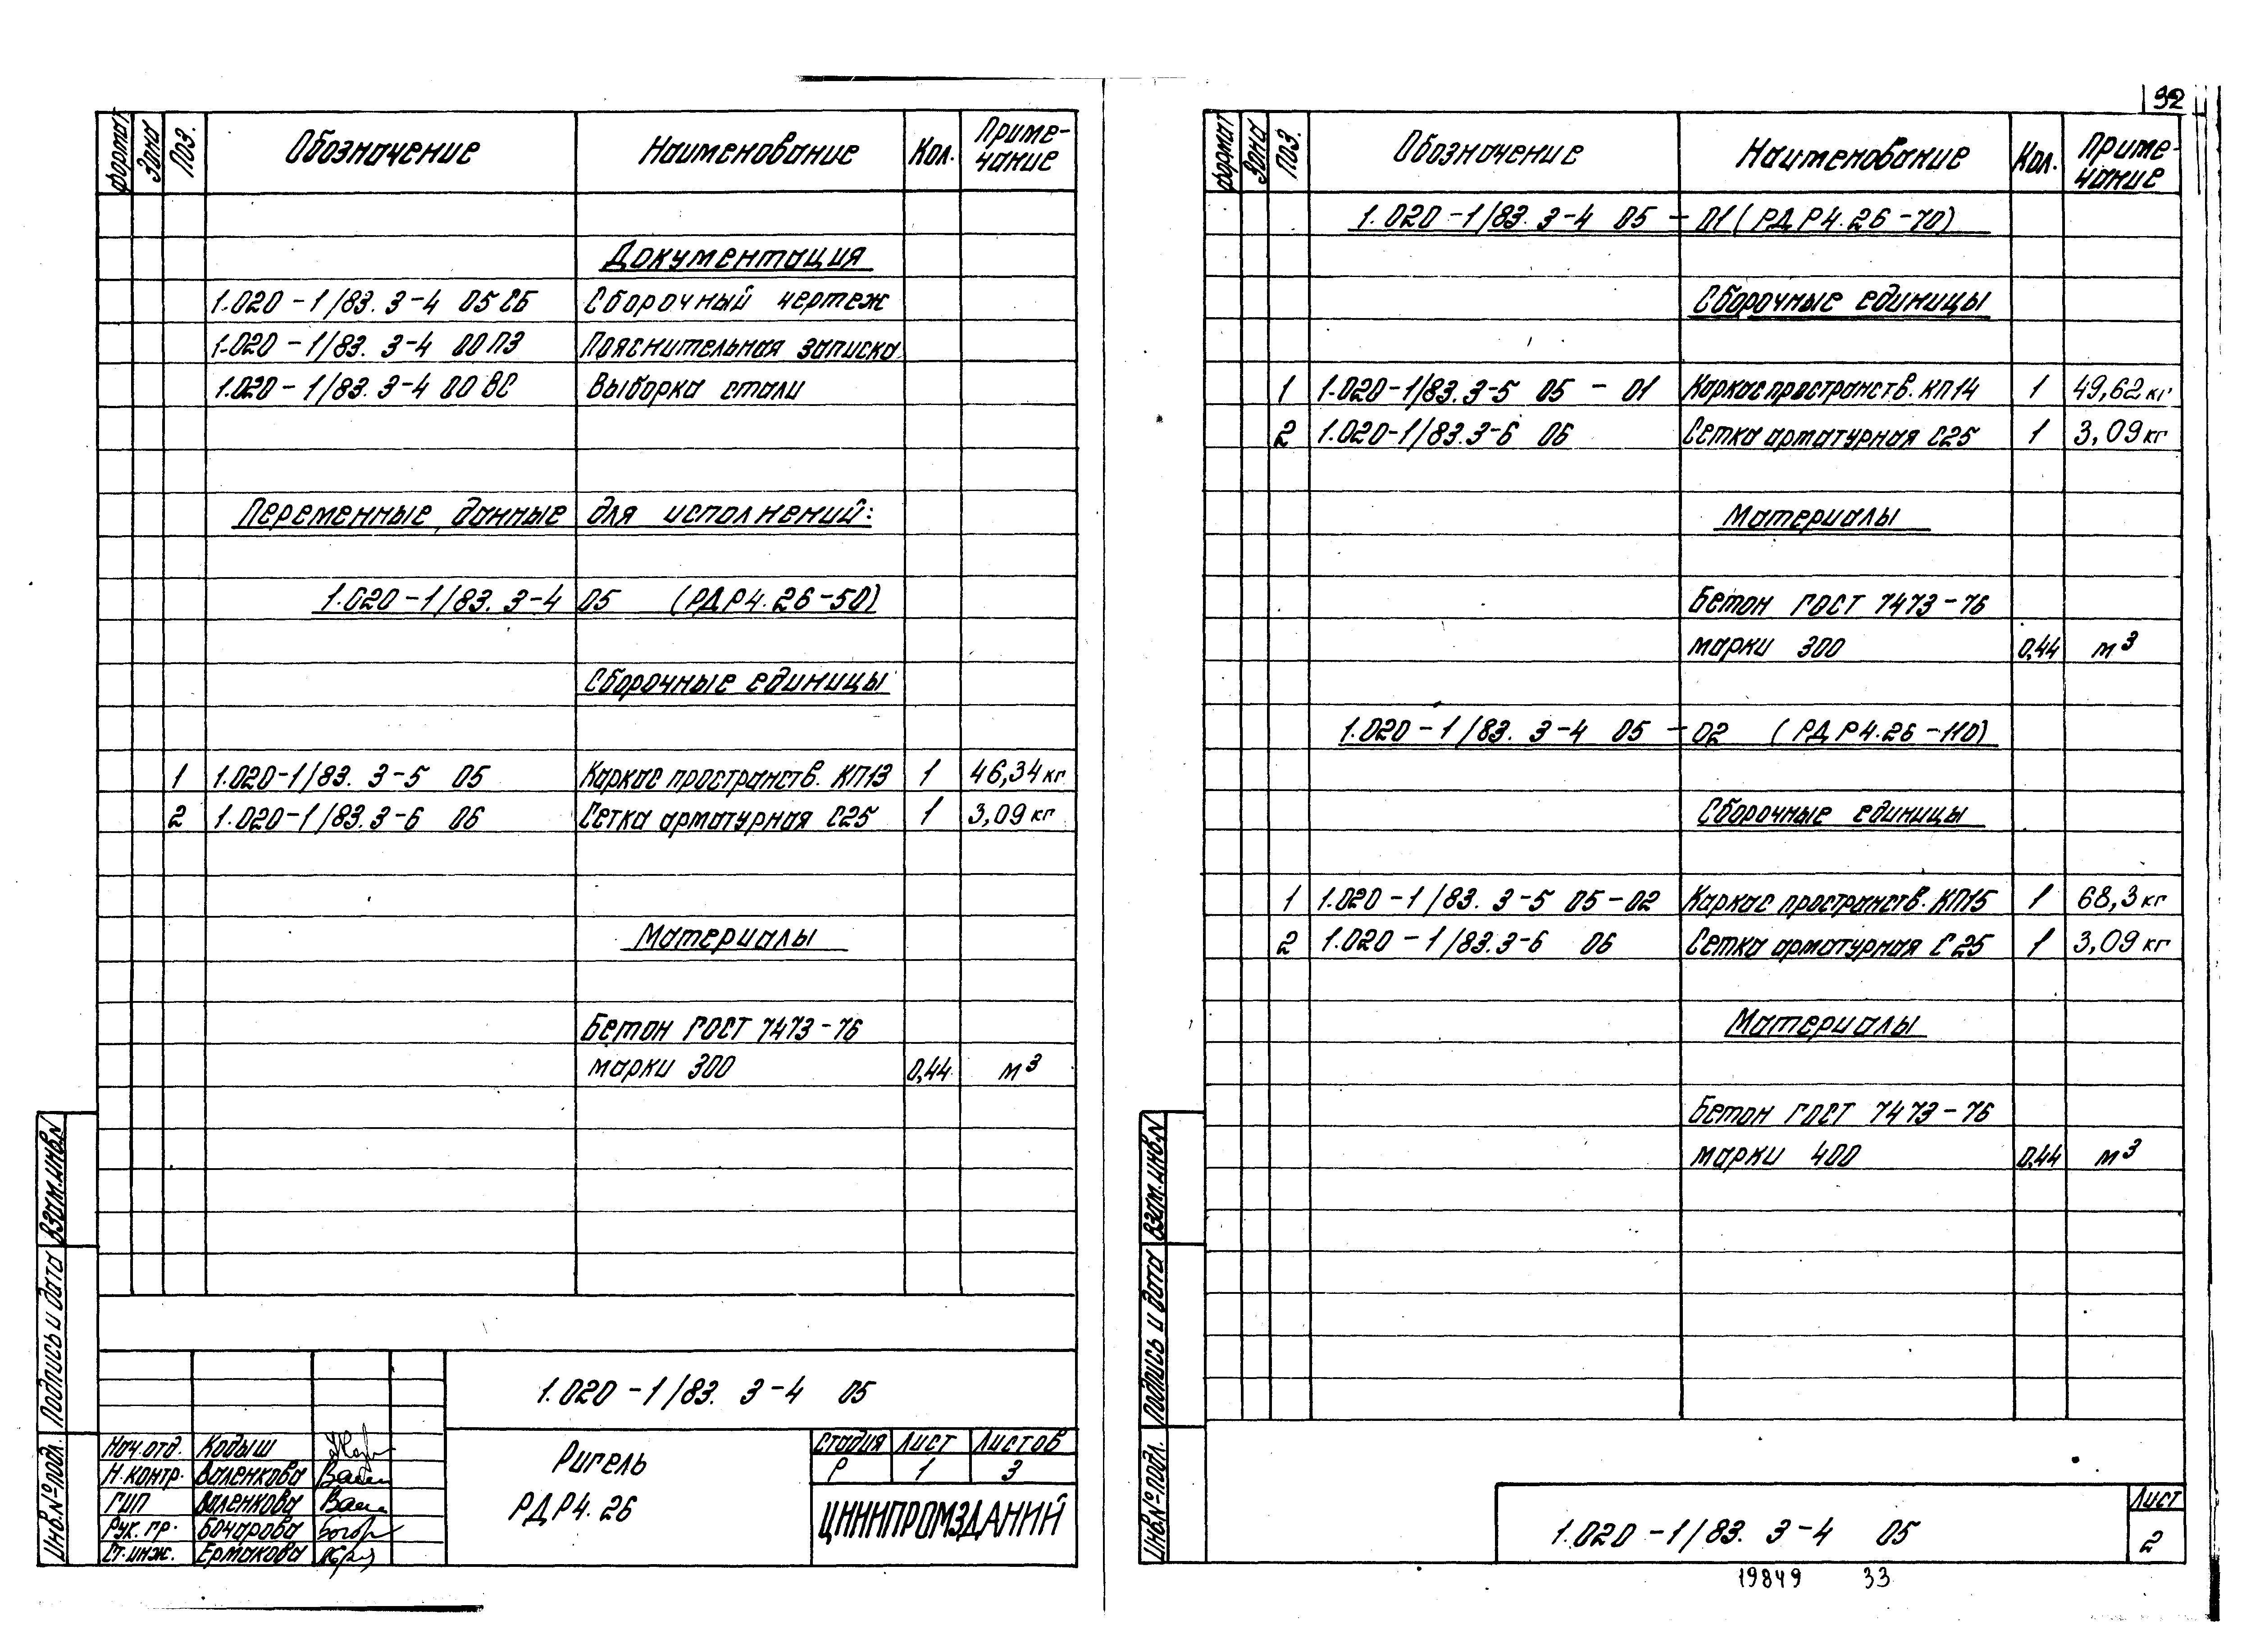 формат Зона Поз. Обозначение Наименование Кол. Приме-чание
Документация
1.020-1/83. 3-4 05 СБ Сборочный чертеж
1.020-1/83. 3-4 00 ПЗ Пояснительная записка
1.020-1/83. 3-4 00 ВС Выборка стали
Переменные данные для исполнений:
1.020-1/83. 3-4 05 (РДР4.26-50)
Сборочные единицы
1 1.020-1/83. 3-5 05 Каркас пространств. КП13 1 46,34 кг
2 1.020-1/83. 3-6 06 Сетка арматурная С25 1 3,09 кг
Материалы
Бетон ГОСТ 7473-76
марки 300 0,44 м³
Взам.инв.N
Подпись и дата
Инв.№ подл.
1.020-1/83. 3-4 05
Нач.отд. Кодыш
Н.контр. Валенкова
ГИП Валенкова
Рук.гр. Бочарова
Ст.инж. Ермакова
Ригель
РДР4.26
Стадия Лист Листов
Р 1 3
ЦНИИПРОМЗДАНИЙ
92
формат Зона Поз. Обозначение Наименование Кол. Приме-чание
1.020-1/83. 3-4 05-01 (РДР4.26-70)
Сборочные единицы
1 1.020-1/83. 3-5 05-01 Каркас пространств. КП14 1 49,62 кг
2 1.020-1/83. 3-6 06 Сетка арматурная С25 1 3,09 кг
Материалы
Бетон ГОСТ 7473-76
марки 300 0,44 м³
1.020-1/83. 3-4 05-02 (РДР4.26-110)
Сборочные единицы
1 1.020-1/83. 3-5 05-02 Каркас пространств. КП15 1 68,3 кг
2 1.020-1/83. 3-6 06 Сетка арматурная С25 1 3,09 кг
Материалы
Бетон ГОСТ 7473-76
марки 400 0,44 м³
Взам.инв.N
Подпись и дата
Инв.№ подл.
1.020-1/83. 3-4 05
Лист
2
19849 33